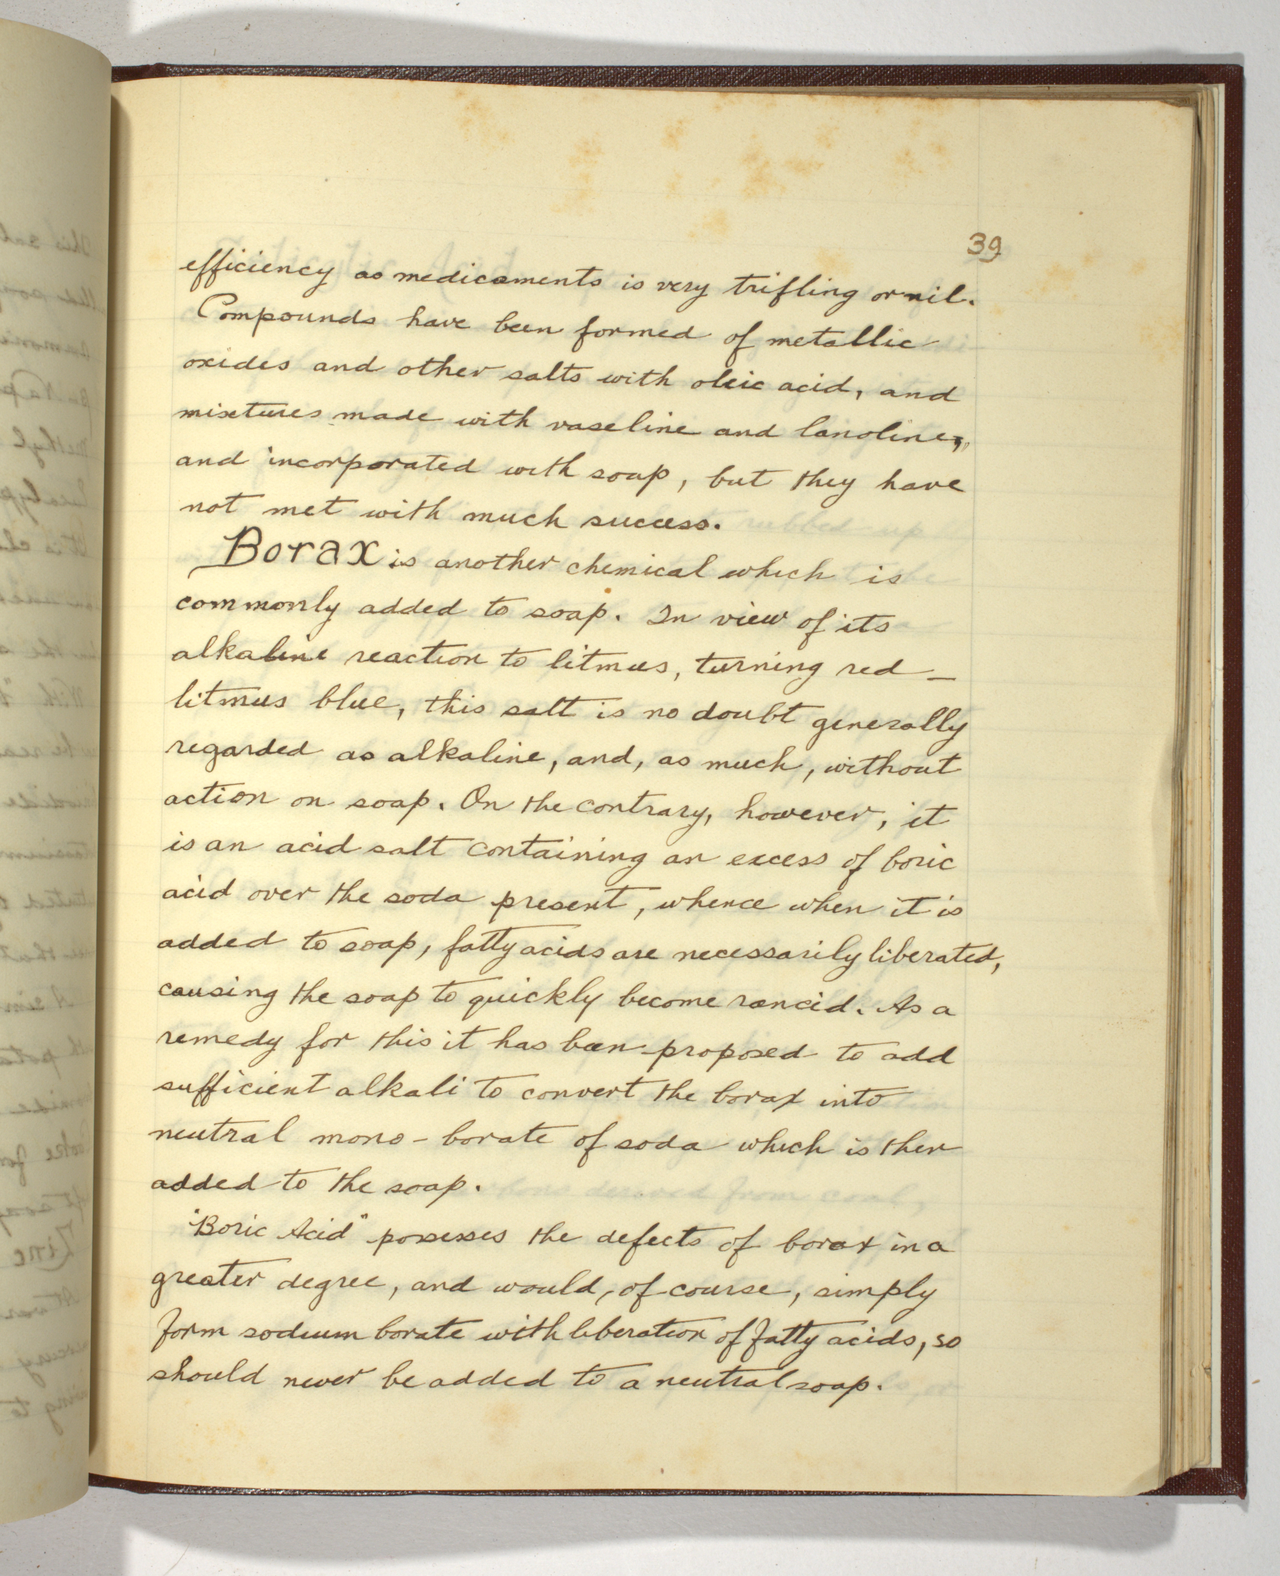 39
efficiency as medicaments is very trifling or nil.
Compounds have been formed of metallic
oxides and other salts with oleic acid, and
mixtures made with vaseline and lanoline,
and incorporated with soap, but they have
not met with much success.
Borax is another chemical which is
commonly added to soap. In view of its
alkaline reaction to litmus, turning red_
litmus blue, this salt is no doubt generally
regarded as alkaline, and, as much, without
action on soap. On the contrary, however, it
is an acid salt containing an excess of boric
acid over the soda present, whence when it is
added to soap, fatty acids are necessarily liberated,
causing the soap to quickly become rancid. As a
remedy for this it has been proposed to add
sufficient alkali to convert the borax into
neutral mono-borate of soda which is then
added to the soap.
"Boric Acid" possesses the defects of borax in a
greater degree, and would, of course, simply
form sodium borate with liberation of fatty acids, so
should never be added to a neutral soap.